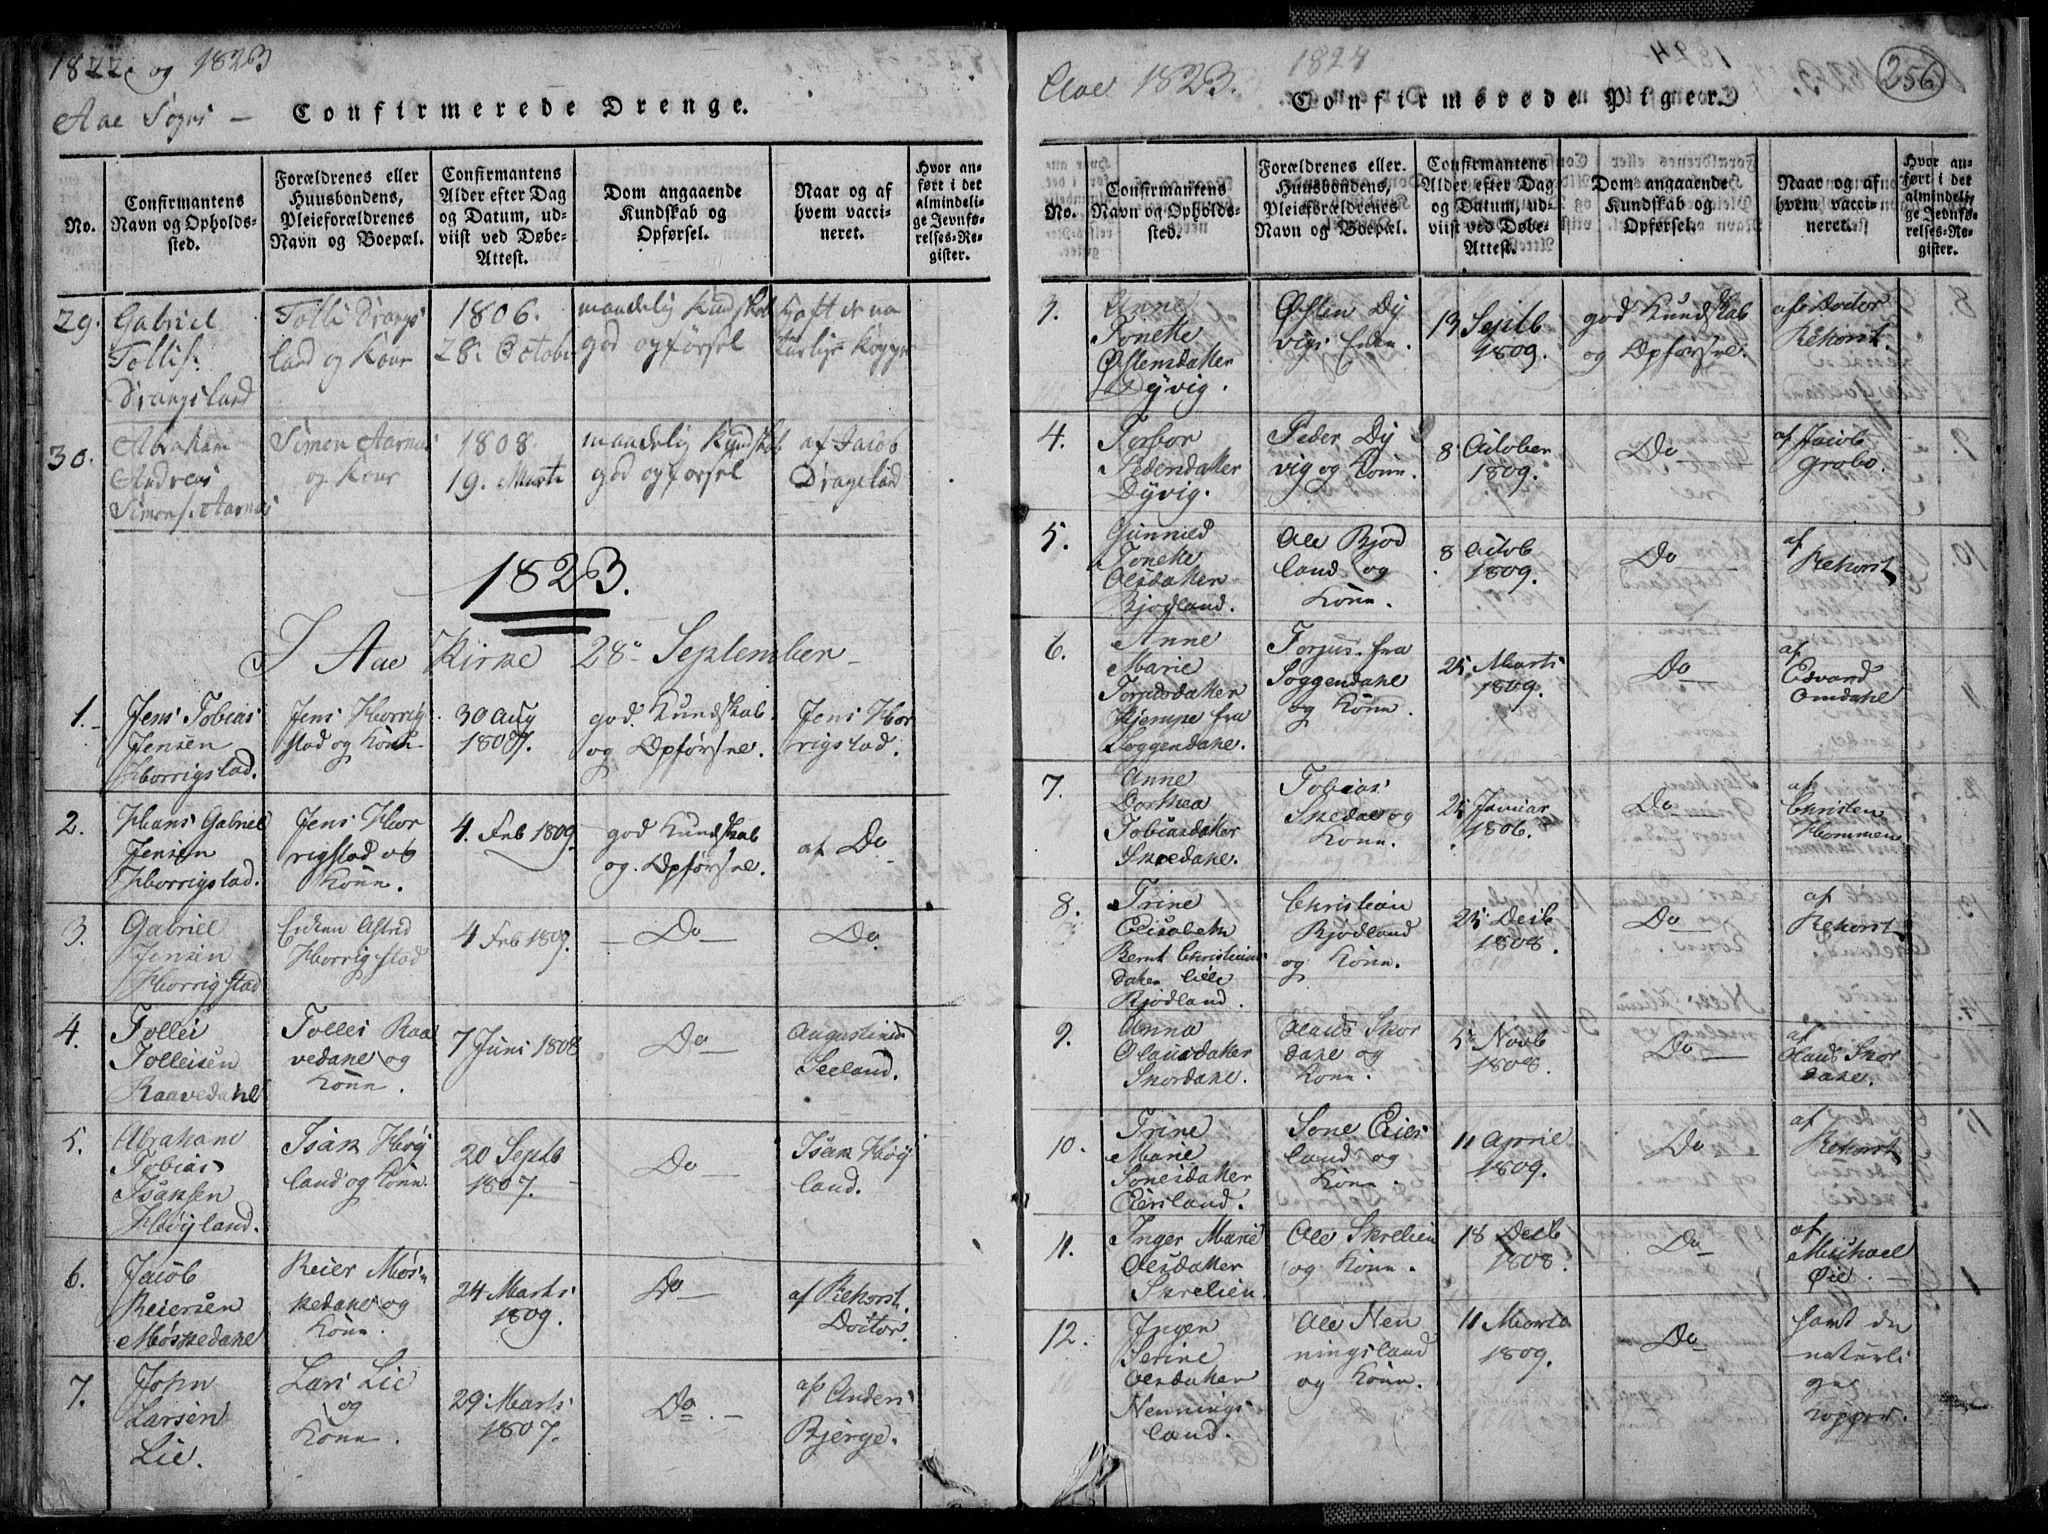 1822 og 1823
Aae Sogn —
Confirmerede Drenge.
No.
Confirmantens
Navn og Opholds-
sted.
Forældrenes eller
Huusbondens,
Pleieforældrenes
Navn og Boepæl.
Confirmantens
Alder efter Dag
og Datum, ud-
viist ved Døbe-
Attest.
Dom angaaende
Kundskab og
Opførsel.
Naar og af
hvem vacci-
neret.
Hvor an-
ført i det
almindeli-
ge Jevnfø-
relses-Re-
gister.
29.
Gabriel
Tollis:
Drangsland
Tolli Drangs
land og Kone
1806.
28. Octobr
maadelig Kundskab
god opførsel
Kraft de na
turlige Kopper
30.
Abraham
Andreas
Simons. Aarnæs
Simon Aarnæs
og Kone
1808.
19. Marts
maadelig Kundskab
god opførsel
af Jacob
Dragsland
1823.
I Aae Kirke 28 September
1.
Jens Tobias
Jensen
Horrigstad.
Jens Horrig
stad og Konn
30 Aug
1807.
god Kundskab
og Opførsel.
Jens Hor
rigstad.
2.
Hans Gabriel
Jensen
Horrigstad.
Jens Hor
rigstad og
Konn.
4. Feb 1809.
god Kundskab
og Opførsel.
af Do
3.
Gabriel
Jensen
Horrigstad
Enken Astrid
Horrigstad
4 Feb 1809.
— Do —
Do.
4.
Tollei
Tolleisen
Raavedahl
Tollei Raa
vedahl og
Konn.
7 Juni 1808
Do —
Augustinus
Seeland.
5.
Abraham
Tobias
Isaksen
Høyland.
Isak Høy
land og Konn.
20 Septb
1807.
Do —
Isak Høy
land.
6.
Jacob
Reiersen
Møskedahl
Reier Møs
kedahl og
Konn.
24 Marts
1809.
Do —
af Rekorst.
Doctor.
7.
John
Larsen
Lie.
Lars Lie
og
Konn.
29. Marts
1807.
Do. —
af Anders
Bjerge.
Aae 1823.
1824
1824
256
Confirmerede Piger.
No.
Confirmantens
Navn og Opholds-
sted.
Forældrenes eller
Huusbondens,
Pleieforældrenes
Navn og Boepæl.
Confirmantens
Alder efter Dag
og Datum, ud-
viist ved Døbe-
Attest.
Dom angaaende
Kundskab og
Opførsel.
Naar og af
hvem vacci-
neret.
Hvor an-
ført i det
almindeli-
ge Jevnfø-
relses-Re-
gister.
3.
Anne
Toneke
Østensdater
Dyvig.
Østen Dy
vigs Enke.
13 Septb
1809.
god Kundskab
og Opførsel.
af Doctor
Rekorst.
4.
Torbor
Pedersdater
Dyvig.
Peder Dy
vig og Konn.
8 October
1809.
Do —
af Jacob
Grobo.
5.
Gunnild
Toneke
Olesdater
Bjodland.
Ole Bjod
land og
Konn.
8 Octob
1809.
Do —
af
Rekorst
6.
Anne
Marie
Torjusdater
Kjempe fra
Soggendahl.
Torjus fra
Soggendahl
og Konn.
25 Marts
1809.
Do —
af
Edvard
Omdahl
7.
Anne
Dorthea
Tobiasdater
Skoedahl.
Tobias
Skedal og
Konn.
25 Januar
1806.
Do —
af
Christen
Hommen
8.
Trine
Elisabeth
Bernt Christians
dater Lille
Bjodland.
Christian
Bjodland
og Konn.
25 Decb
1808.
Do —
af
Rekorst
9.
Anna
Olausdater
Skordahl.
Olaus Skor
dahl og
Konn.
5 Novb
1808.
Do —
af
Olaus Skor
dahl.
10.
Trine
Marie
Sonesdater
Eiesland.
Sone Eies
land og
Konn.
11 April
1809.
Do
af
Rekorst
11.
Inger Marie
Olesdater
Skrelien
Ole Skrelien
og Konn.
18 Decb
1808.
Do
af
Michael
Øie. —
12.
Inger
Serine
Olesdater
Nennings
land.
Ole Nen
ningsland
og Konn.
11 Marts
1809.
Do
havt de
naturli
ge
Kopper.